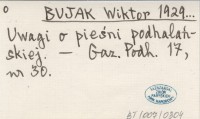 o BUJAK Wiktor 1929...
Uwagi o pieśni podhalań-
skiej. — Gaz. Podh. 17,
nr 30.